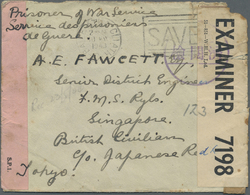 Prisoner of War Service
Service des prisoniers
de Guerre.
SAVE
A. E. FAWCETT.
Senior District Engineer
F.M.S. Rlys.
Singapore.
123
British Civilian
c/o Japanese Red
Tokyo.
EXAMINER 7198